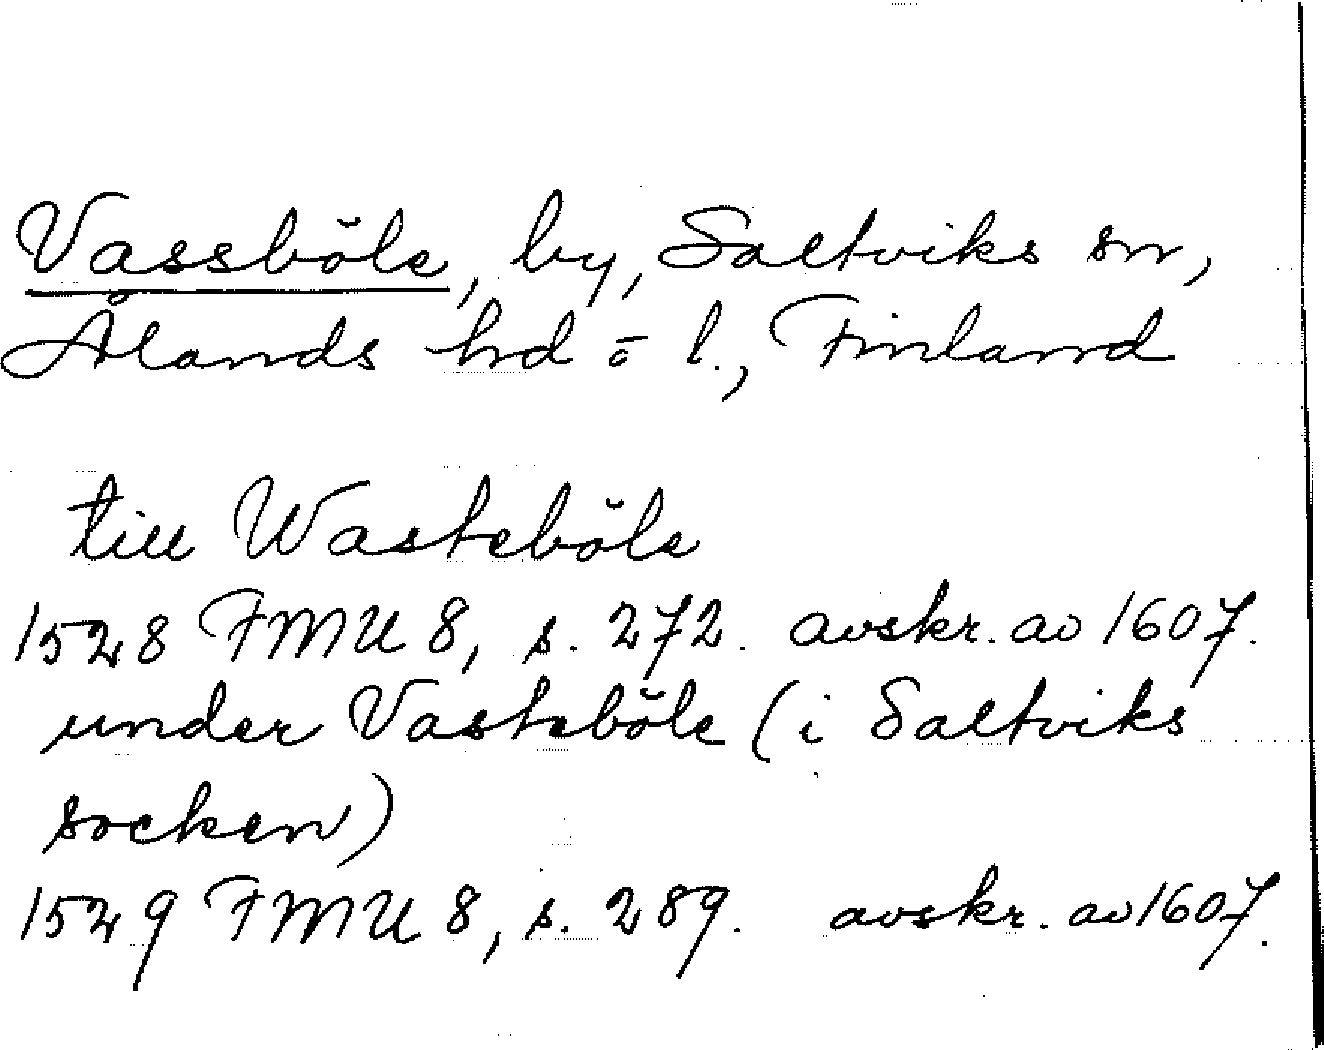 Vassböle, by, Saltviks sn,
Ålands hd o l., Finland
till Wasteböle
1528 FMU 8, s. 272. avskr. av 1607.
under Vasteböle (i Saltviks
socken)
1529 FMU 8, s. 289. avskr. av 1607.